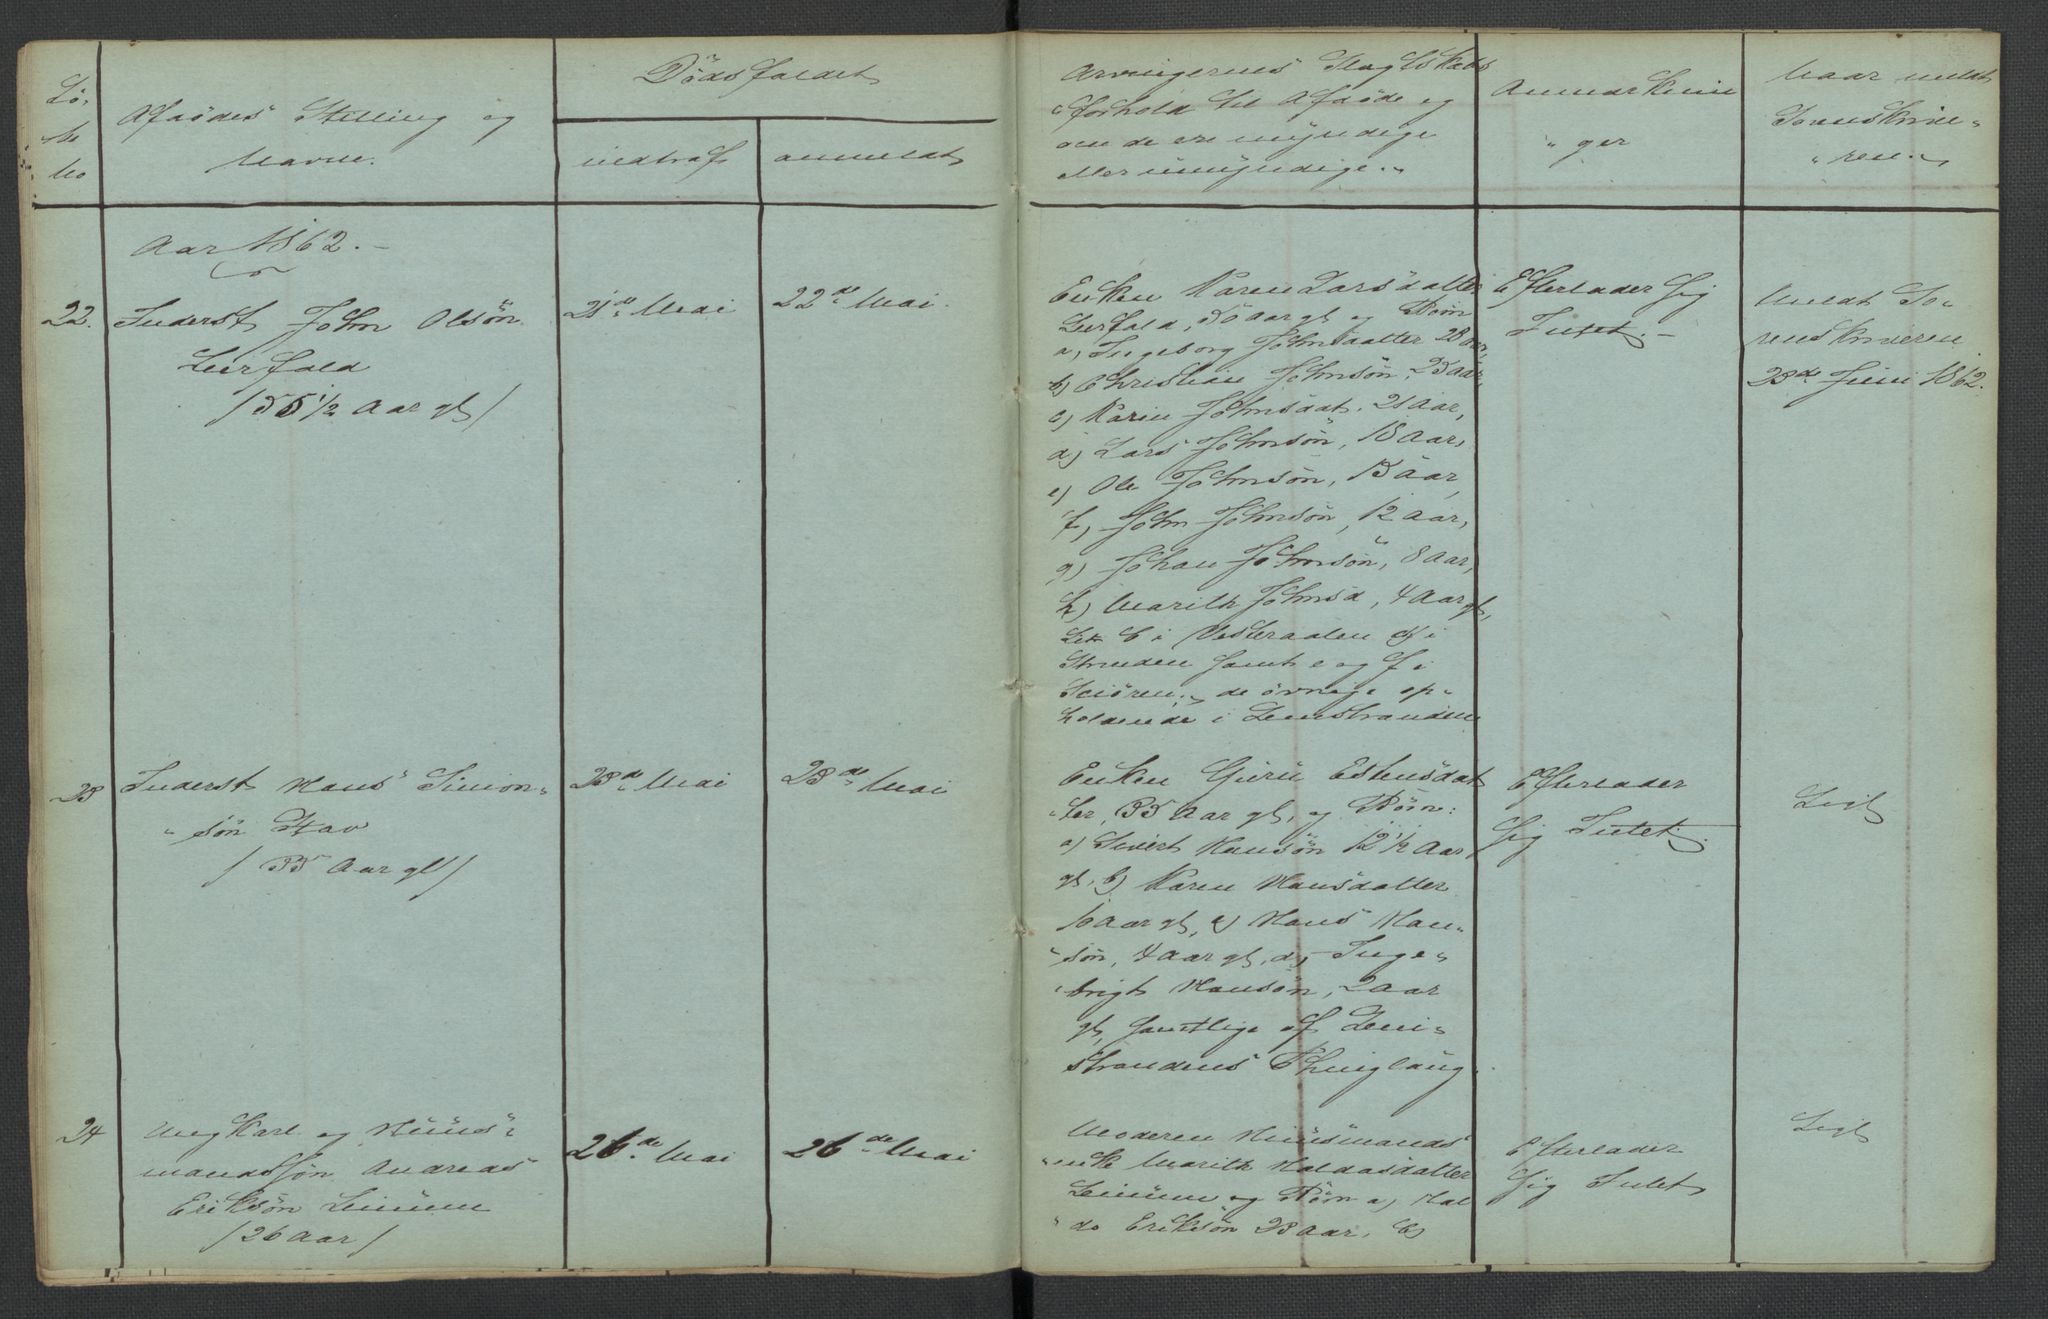 Lö-
be
No
Afdødes Stilling og
Navn.
Dödsfaldet
indtraf
anmeldt
Arvingernes Slagtskabs
forhold til Afdøde og
om de ere myndige
eller umyndige.
Anmærknin
"ger
Naar meldt
Sorenskrive-
"ren.
Aar 1862.
22.
Inderst John Olsön
Leerfald
/ 56 1/2 Aar gl /
21de Mai
22de Mai
Enken Karen Larsdatter
Leerfald, 50 aar gl og Børn
a, Ingeborg Johnsdatter 28 aar,
b) Christian Johnsön, 25 aar,
c) Karin Johnsdat. 21 aar,
d) Lars Johnsön, 18 Aar,
e) Ole Johnsön, 15 aar,
f, John Johnsön, 12 aar,
g) Johan Johnsön, 8 aar,
h) Marith Johnsd, 4 Aar gl,
Litr b i Vesteraalen d i
Strinden samt e og f i
de øvrige op-
holdende i Leinstranden
Efterlader sig
Intet.
Meldt So-
renskriveren
28de Juni 1862.
23
Inderst Hans Simon-
"sön Hav
/ 35 Aar gl /
23de Mai
23de Mai
Enken Guru Estensdat
"ter, 35 Aar gl, og Børn:
a) Sivert Hansön 12 1/2 Aar
gl, b) Karen Hansdatter
6 aar gl, c) Hans Han-
"sön, 4 aar gl, d, Inge-
"brigt Hansön, 2 aar
gl, samtlige af Lein-
strandens Thinglaug.
Efterlader
sig Intet.
Ligt
24
Ungkarl og Huus-
mandssøn Andreas
Eriksön Leinum
/ 26 aar /
26de Mai
26de Mai
Moderen Huusmands
"enke Marith Haldosdatter
Leinum og Børn a, Hal
"do Eriksön 28 Aar, b)
Efterlader
sig Intet
Ligt